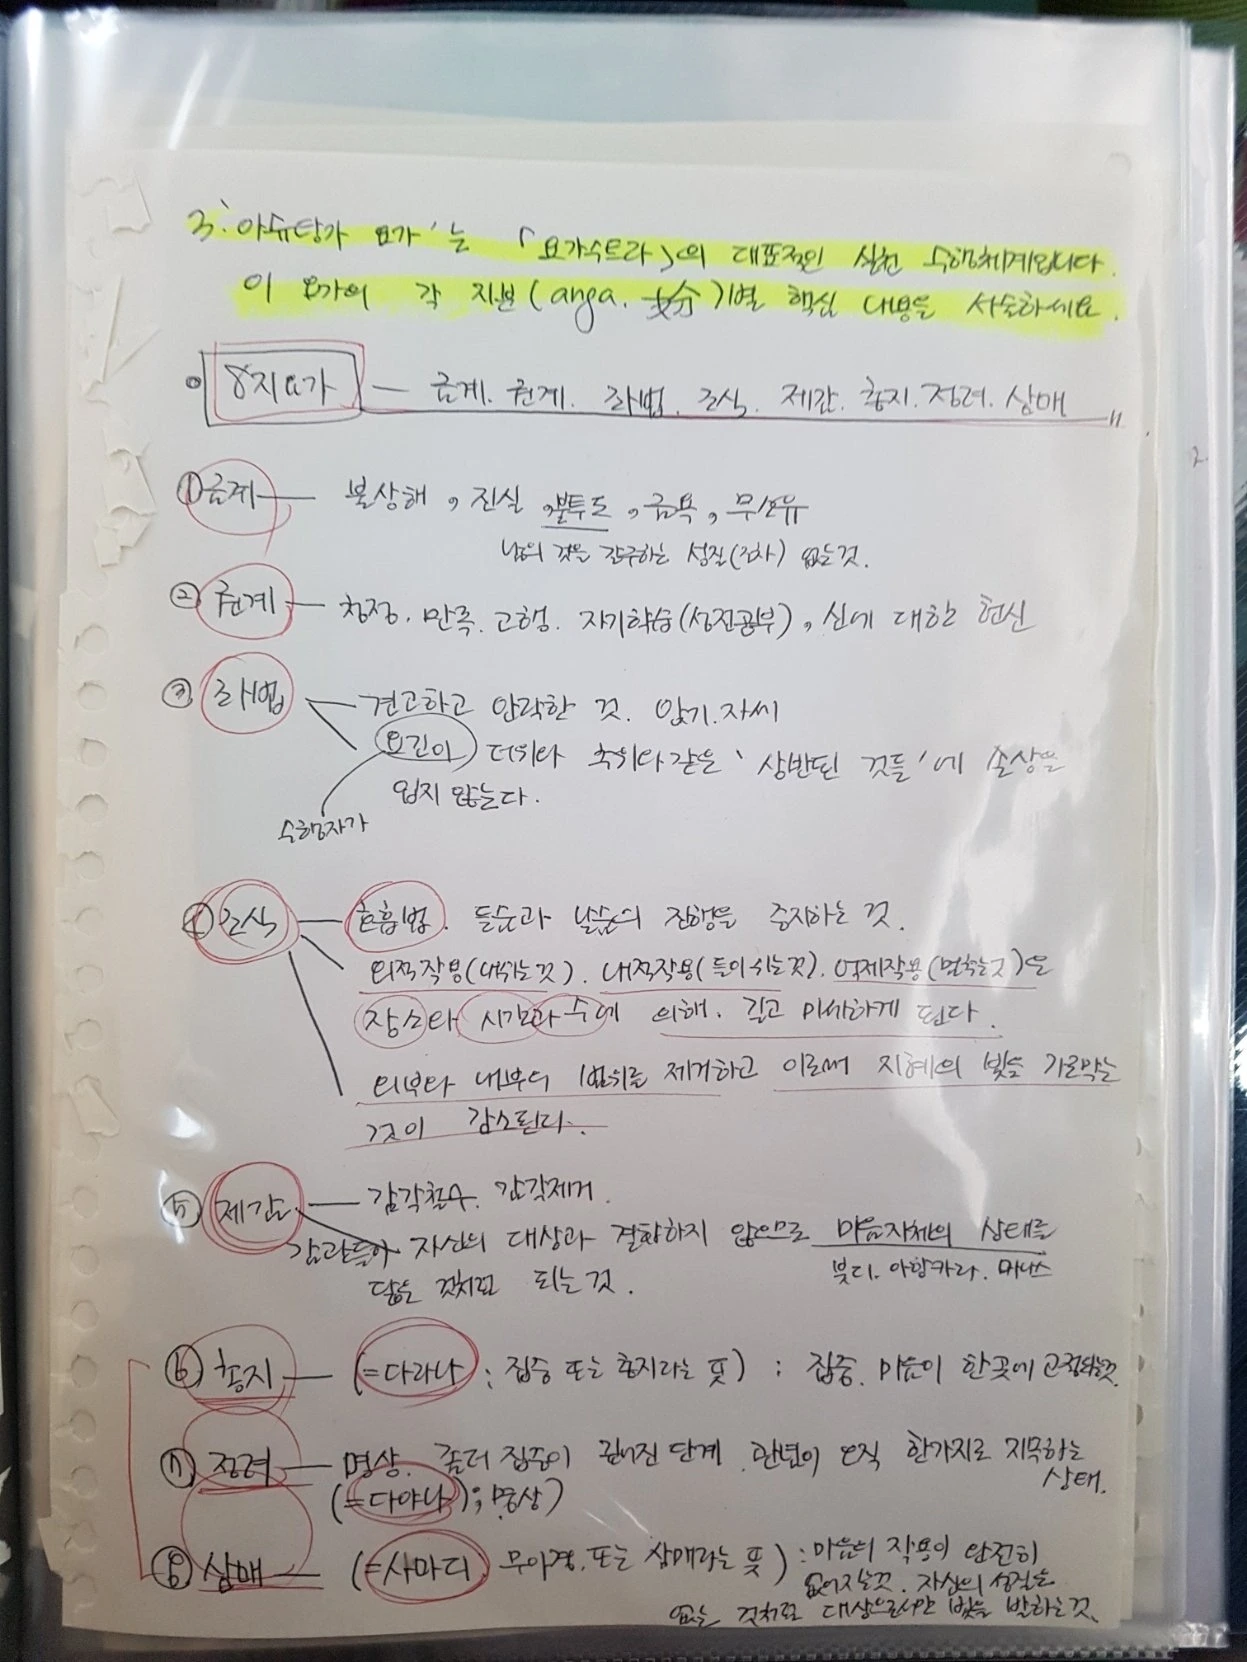 3. '아슈탕가 요가'는 「요가수트라」의 대표적인 실천 수행체계입니다.
이 요가의 각 지분(anga. 支分)별 핵심 내용을 서술하세요.
8지요가 — 금계. 권계. 좌법. 조식. 제감. 총지. 정려. 삼매
2.
① 금계 — 불상해, 진실, 불투도, 금욕, 무소유
남의 것을 갈구하는 성질(집착) 없는것.
② 권계 — 청정. 만족. 고행. 자기학습(성전공부), 신에 대한 헌신
③ 좌법 — 견고하고 안락한 것. 앉기.자세
요긴이 더위나 추위와같은 '상반된 것들'에 손상을
입지 않는다.
수행자가
④ 조식 — 호흡법. 들숨과 날숨의 진행을 중지하는 것.
외적작용(내쉬는것). 내적작용(들이쉬는것). 억제작용(멈추는것)은
장소와 시간과 수에 의해. 길고 미세하게 된다.
외부와 내부의 범위를 제거하고 이로써 지혜의 빛을 가로막는
것이 감소된다.
⑤ 제감 — 감각철수. 감각제거.
감관들이 자신의 대상과 결합하지 않으므로 마음자체의 상태를
붓디. 아항카라. 마나스
닮은 것처럼 되는것.
⑥ 총지 — (=다라나 : 집중 또는 총지라는 뜻) : 집중. 마음이 한곳에 고정되는것.
⑦ 정려 — 명상. 좀더 집중이 깊어진 단계. 관념이 오직 한가지로 지속하는
상태.
(=다야나); 명상)
⑧ 삼매 — (=사마디. 무아경. 또는 삼매라는 뜻) : 마음의 작용이 완전히
없어지는것. 자신의 성질은
없는 것처럼 대상으로서만 빛을 발하는것.